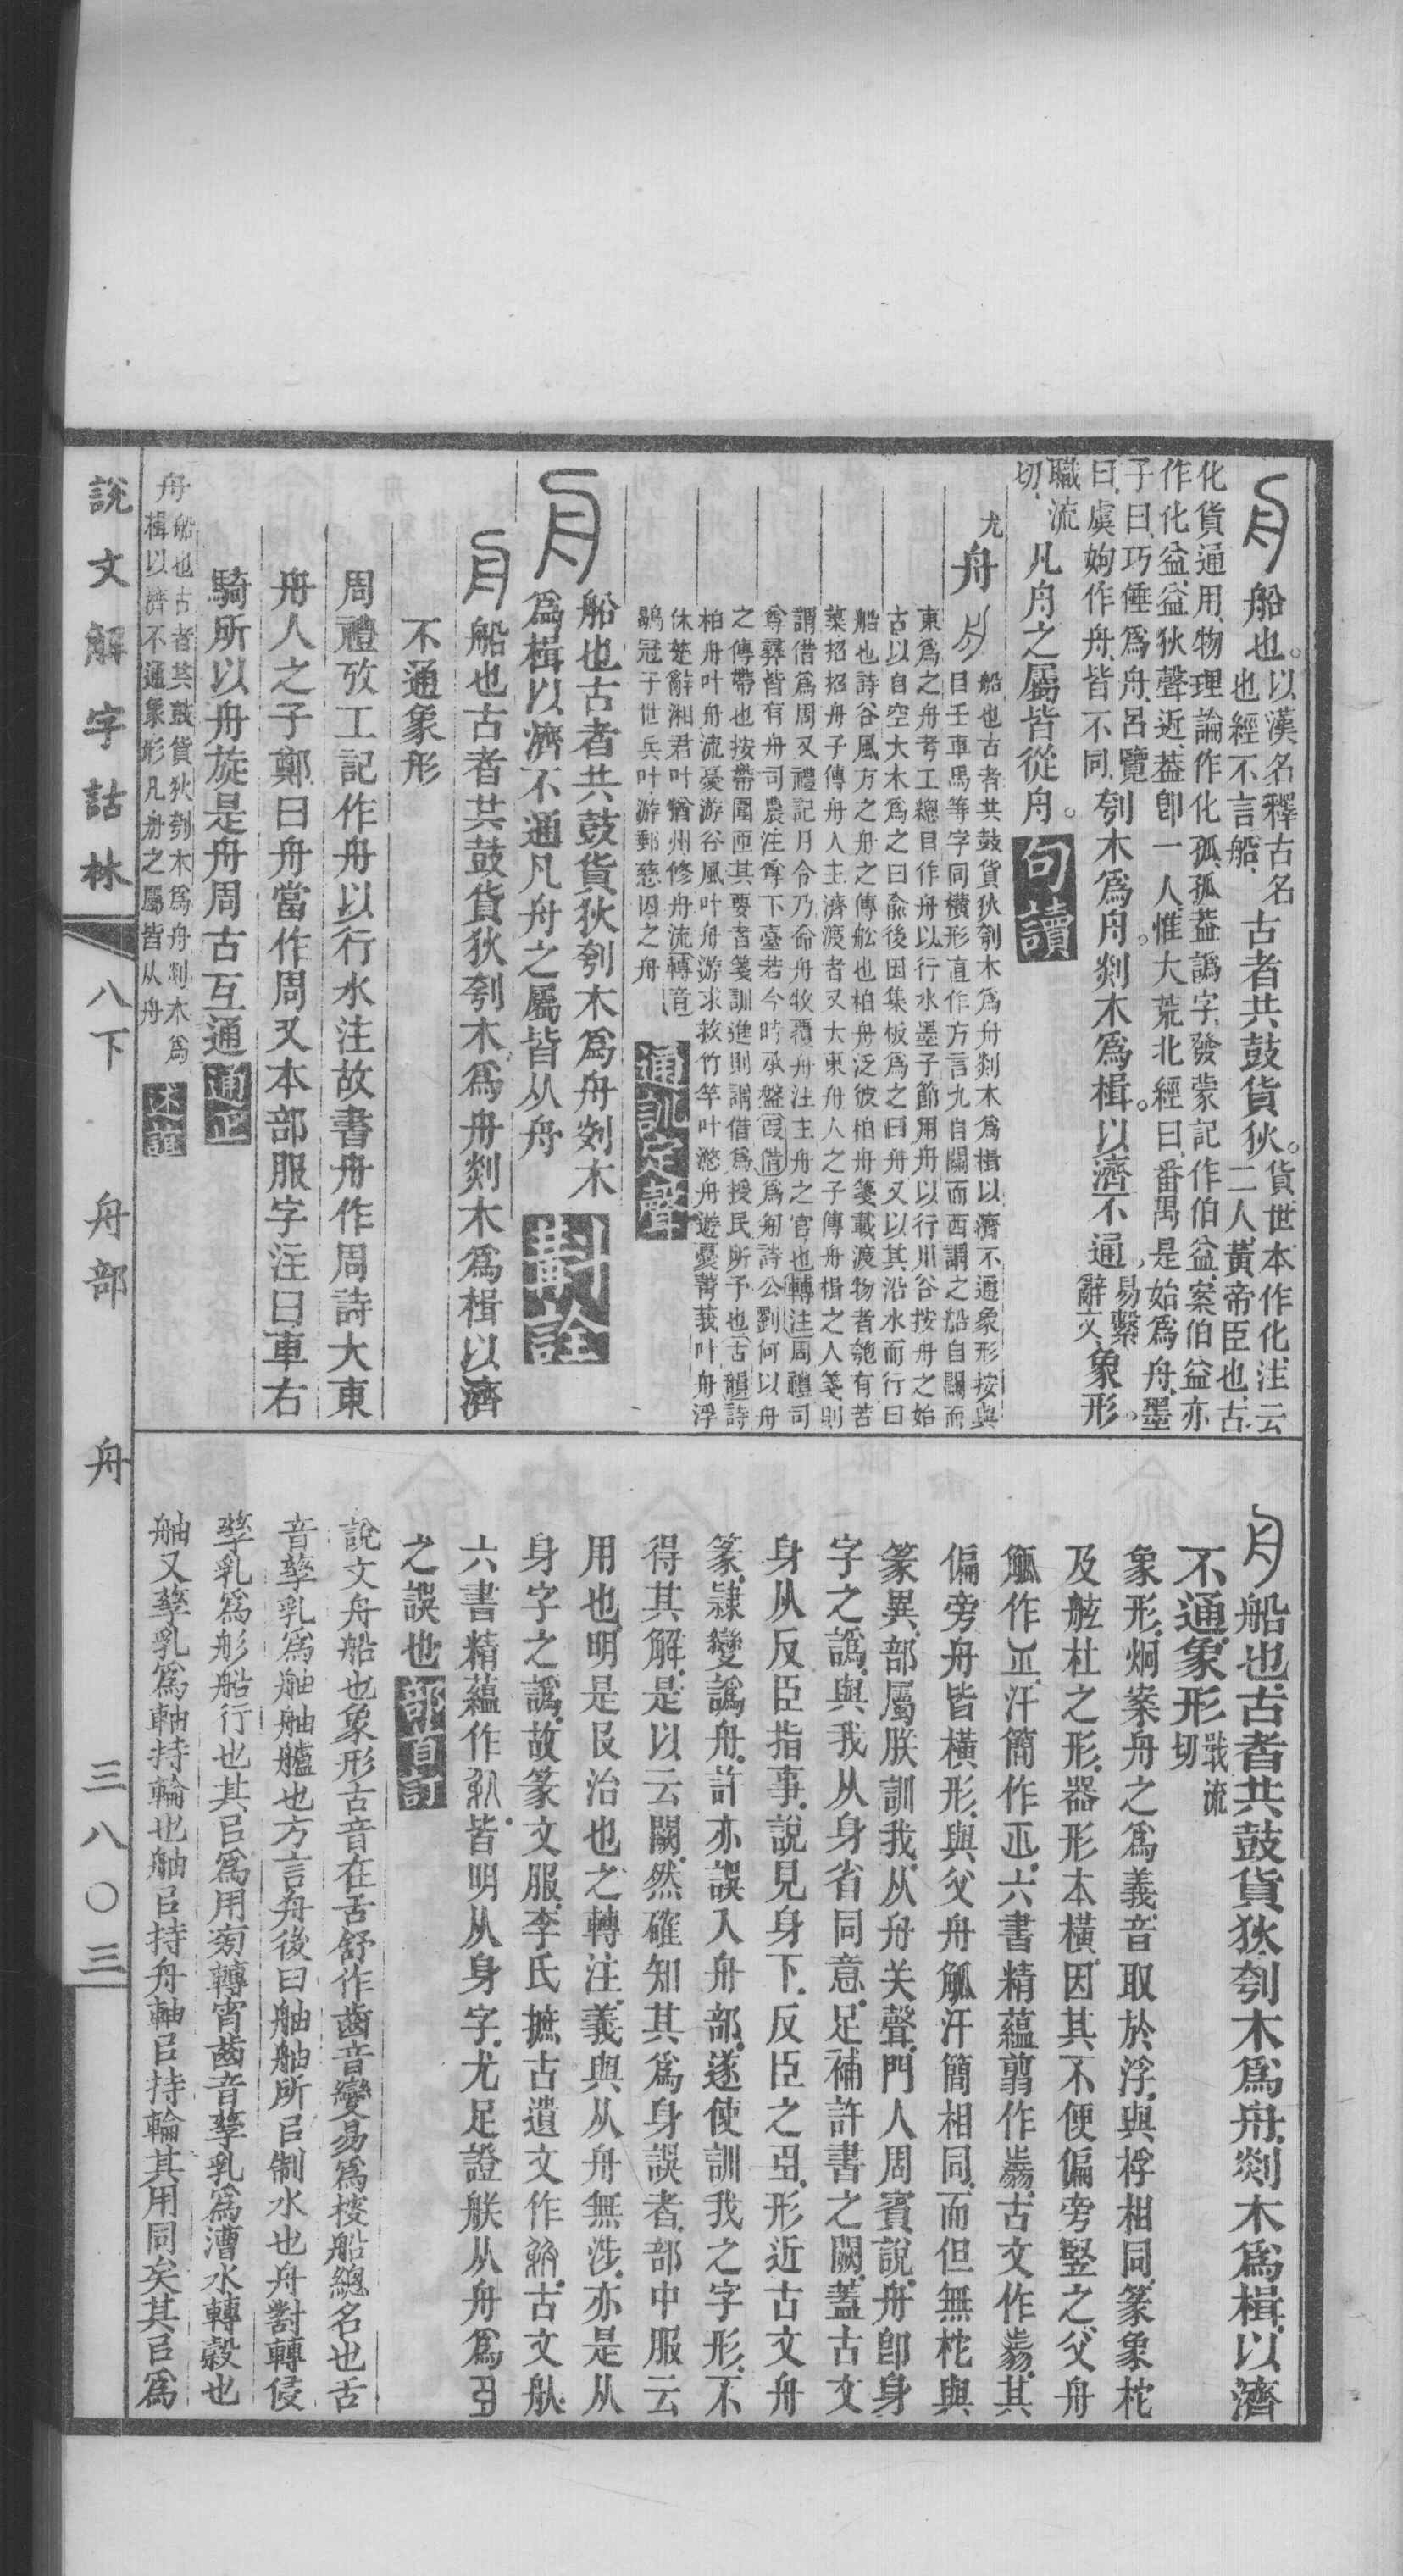 船也。以漢名釋古名
也經不言船
古者共鼓貨狄。貨世本作化注云
二人黃帝臣也古
化貨通用物理論作化孤孤葢譌字發蒙記作伯益案伯益亦
作化益益狄聲近葢卽一人惟大荒北經曰番禺是始爲舟墨
子曰巧倕爲舟呂覽
曰虞姁作舟皆不同
刳木爲舟。剡木爲楫。以濟不通。易繫
辭文
象形。
職流
切
凡舟之屬皆從舟。句讀
尤
舟
船也古者共鼓貨狄刳木爲舟剡木爲楫以濟不通象形按與
目壬車馬等字同橫形直作方言九自關而西謂之船自關而
東爲之舟考工總目作舟以行水墨子節用舟以行川谷按舟之始
古以自空大木爲之曰俞後因集板爲之曰舟又以其沿水而行曰
船也詩谷風方之舟之傳舩也柏舟泛彼柏舟箋載渡物者匏有苦
葉招招舟子傳舟人主濟渡者又大東舟人之子傳舟楫之人箋則
謂借爲周又禮記月令乃命舟牧覆舟注主舟之官也轉注周禮司
尊彝皆有舟司農注尊下臺若今時承盤叚借爲匊詩公劉何以舟
之傳帶也按帶圍匝其要者箋訓進則謂借爲授民所予也古韻詩
柏舟叶舟流憂游谷風叶舟游求救竹竿叶滺舟遊憂菁莪叶舟浮
休楚辭湘君叶猶州修舟流轉音
鶡冠子世兵叶游郵慈囚之舟
通訓定聲
船也古者共鼓貨狄刳木爲舟剡木
爲楫以濟不通凡舟之屬皆从舟
斠詮
船也古者共鼓貨狄刳木爲舟剡木爲楫以濟
不通象形
周禮攷工記作舟以行水注故書舟作周詩大東
舟人之子鄭曰舟當作周又本部服字注曰車右
騎所以舟旋是舟周古互通通正
舟
船也古者共鼓貨狄刳木爲舟剡木爲
楫以濟不通象形凡舟之屬皆从舟
說文解字詁林
八下
舟部
舟
三八〇三
船也古者共鼓貨狄刳木爲舟剡木爲楫以濟
不通象形戰流
切
象形烱案舟之爲義音取於浮與桴相同篆象柁
及舷杜之形器形本橫因其不便偏旁豎之父舟
觚作汗簡作六書精蘊翦作古文作其
偏旁舟皆橫形與父舟觚汗簡相同而但無柁與
篆異部屬朕訓我从舟关聲門人周賓說舟卽身
字之譌與我从身省同意足補許書之闕蓋古文
身从反臣指事說見身下反臣之形近古文舟
篆隸變譌舟許亦誤入舟部遂使訓我之字形不
得其解是以云闕然確知其爲身誤者部中服云
用也明是𠬝治也之轉注義與从舟無涉亦是从
身字之譌故篆文服李氏摭古遺文作古文
六書精蘊作皆明从身字尤足證朕从舟爲
之誤也部首訂
說文舟船也象形古音在舌舒作齒音變易爲㮴船總名也舌
音孳乳爲舳舳艫也方言舟後曰舳舳所㠯制水也舟對轉侵
孳乳爲彤船行也其㠯爲用旁轉宵齒音孳乳爲漕水轉穀也
舳又孳乳爲軸持輪也舳㠯持舟軸㠯持輪其用同矣其㠯爲